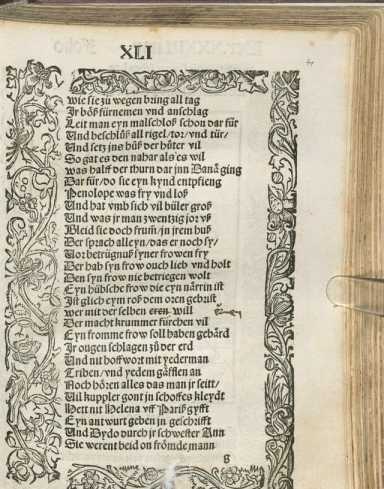 XLI
wie sie zů wegen bring all tag
Ir bőß fürnemen vnd anschlag
Leit man eyn malschloß schon dar für
Vnd beschlüßt all rigel / tor / vnd tür /
Vnd setz jns huß der hůter vil
So gat es den nahar als es wil
was halff der thurn dar jnn Dana ging
Dar für / do sie eyn kynd entpfieng
Penolope was fry vnd loß
Vnd hat vmb sich vil bůler groß
Vnd was jr man zwentzig jor vß
Bleid sie doch frum / jn jrem huß
Der sprach alleyn / das er noch sy /
Vor betrügnuß syner frowen fry
Der hab syn frow ouch lieb vnd holt
Den syn frow nie betriegen wolt
Eyn hübsche frow die eyn närrin ist
Ist glich eym roß dem oren gebrist
wer mit der selben eren will
Der macht krummer fürchen vil
Eyn fromme frow soll haben gebärd
Ir ougen schlagen zů der erd
Vnd nit hoffwort mit yederman
Triben / vnd yedem gäfflen an
Noch hören alles das man jr seitt /
Vil kuppler gont jn schoffes kleydt
Hett nit Helena vff Pariß gyfft
Eyn antwurt geben jn geschrifft
Vnd Dydo durch jr schwester Ann
Sie werent beid on frömde mann
g